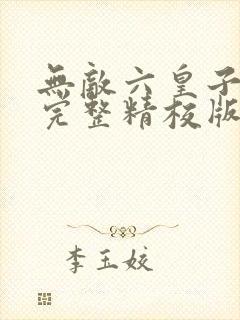 無敵六皇子
完整精校版
李玉姣